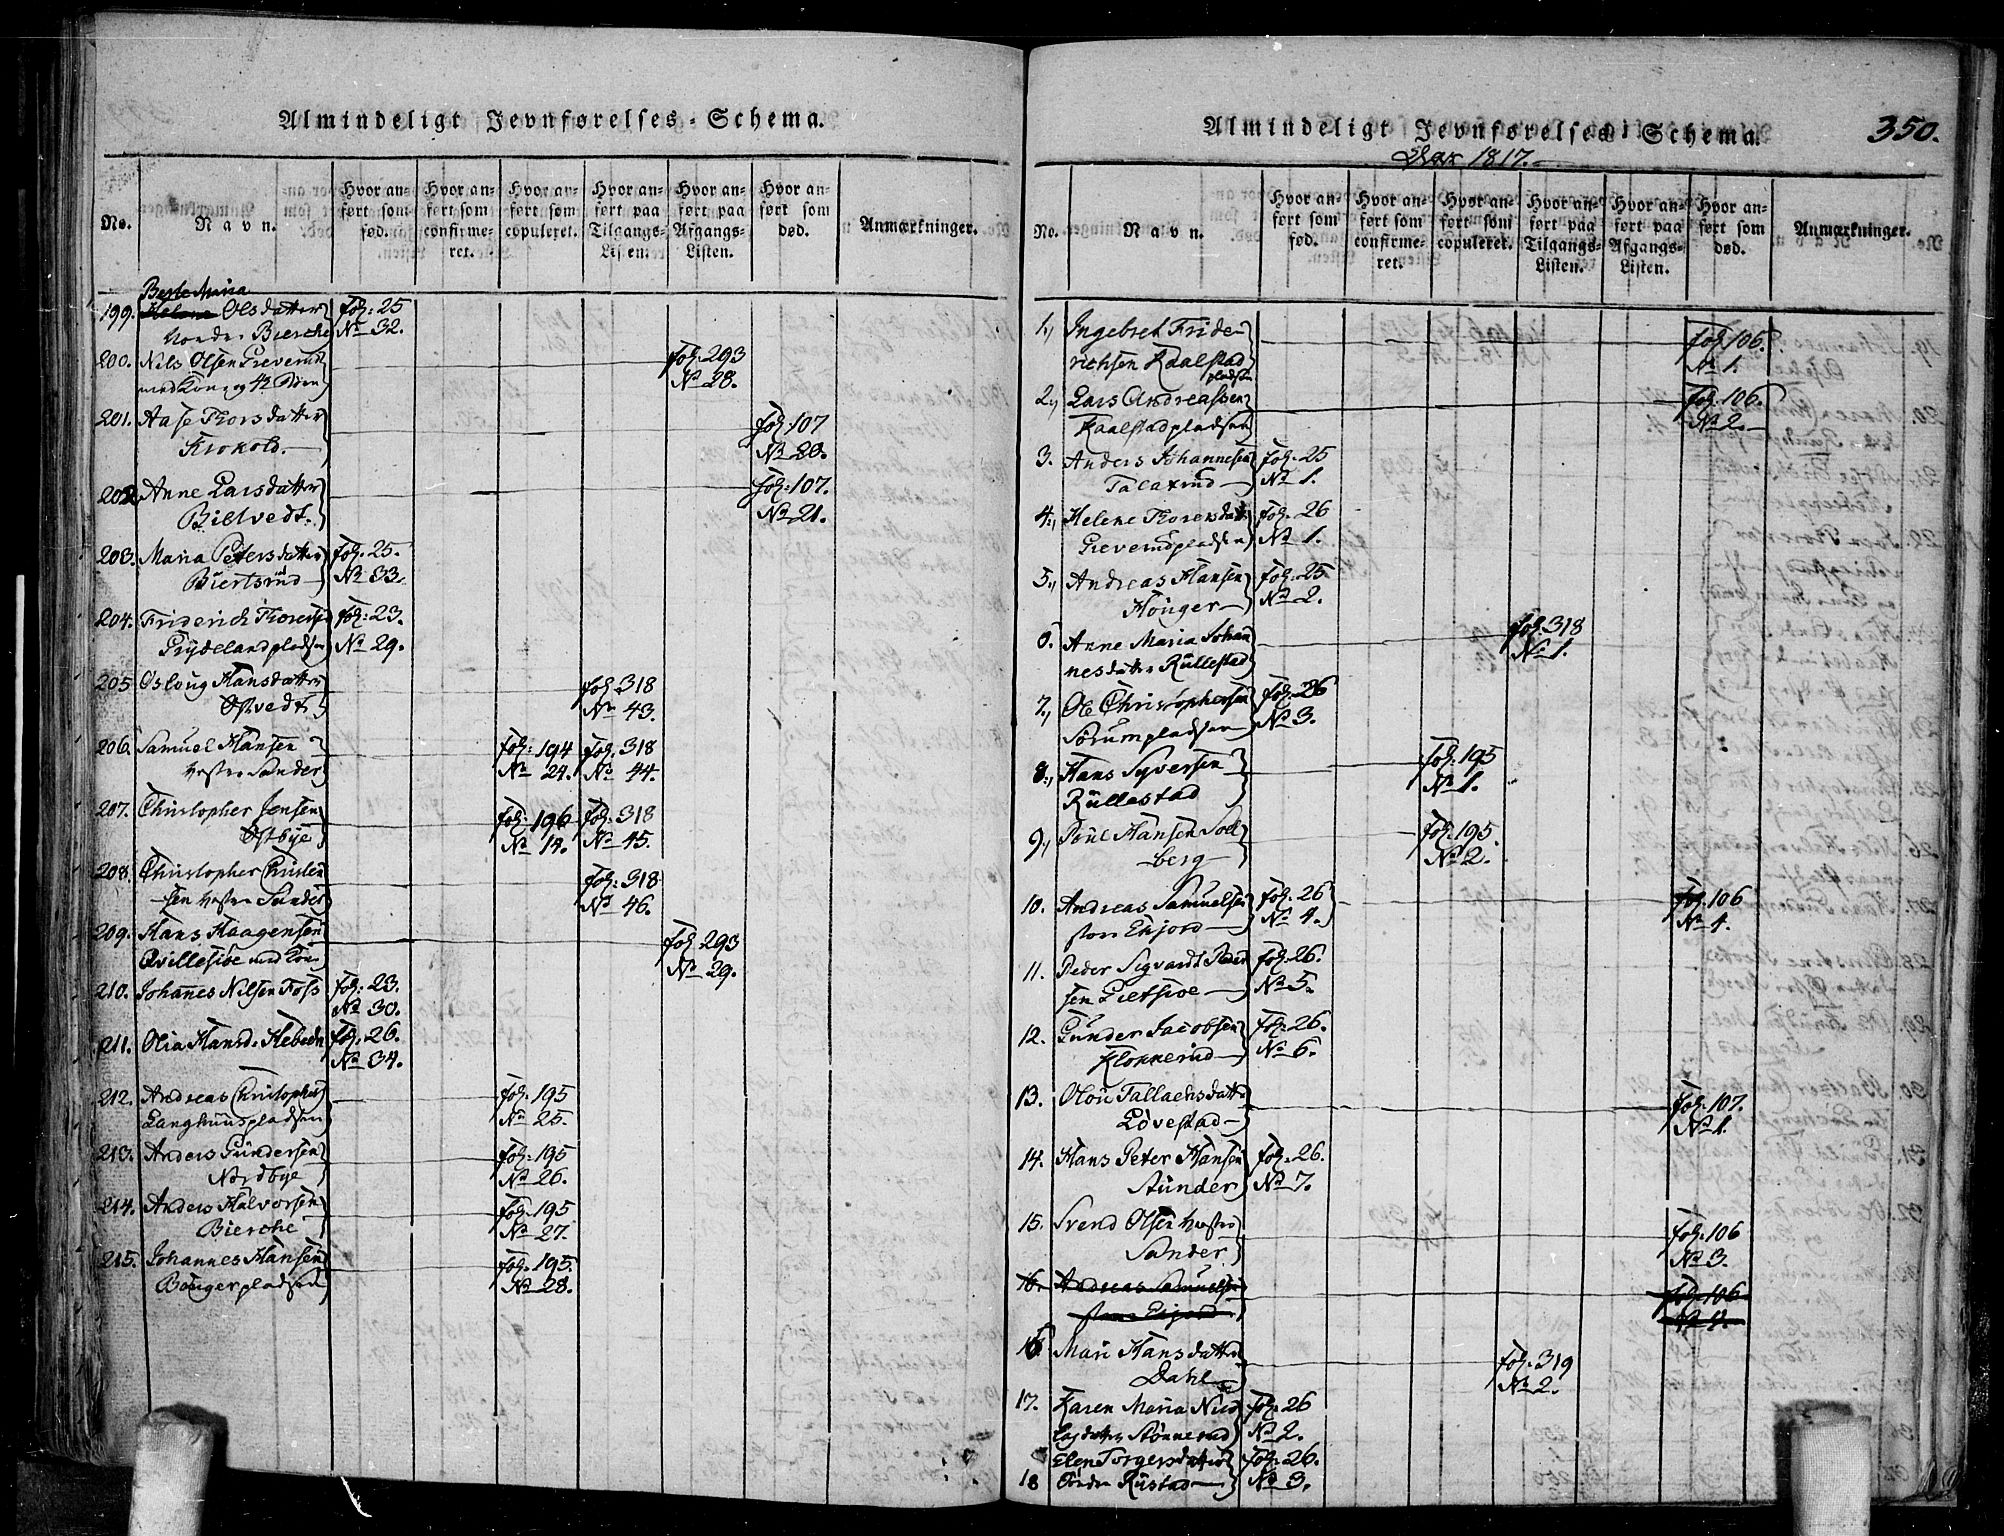 Almindeligt Jevnførelses-Schema.
No.
Navn.
Hvor an-
ført som
fød.
Hvor an-
ført som
confirme-
ret.
Hvor an-
ført som
copuleret.
Hvor an-
ført paa
Tilgangs-
Listen
Hvor an-
ført paa
Afgangs-
Listen.
Hvor an-
ført som
død.
Anmærkninger.
199. Helene Olsdatter fol: 25
Nordre Bierche No 32.
200. Nils Olsen Greverud fol. 293
No 28.
201. Aase Thorsdatter fol: 107
Krokold. No 20.
202 Anne Larsdatter fol: 107.
Bietvedt. No 21.
203. Maria Petersdatter fol: 25.
Biertsrud No 33.
204. Friderich Thoresen fol: 23.
Frydelandpladsen No 29.
205 Osloug Hansdatter fol. 318
Ostvedt No 43.
206. Samuel Hansen fol: 194 fol. 318
vestre Sander No 24. No 44.
207. Christopher Jensen fol: 196 fol: 318
Østbye No 14. No 45.
208. Christopher Christen fol: 318
sen vestre Sander No 46.
209. Hans Haagensen fol. 293
Qvillesioe med Kone No 29.
210. Johannes Nilsen Foss fol: 23.
No 30.
211. Olia Hansd. fol. 26.
No 34.
212. Andreas Christophers fol: 195
Langhuuspladsen No 25.
213. Anders Gundersen fol: 195
Nordbye No 26.
214. Anders Halvorsen fol: 195
Bierche No 27.
215. Johannes Hansen fol: 195.
Bougerpladsen No 28.
Almindeligt Jevnførelses-Schema.
350.
Aar 1817.
No.
Navn.
Hvor an-
ført som
fød.
Hvor an-
ført som
confirme-
ret.
Hvor an-
ført som
copuleret.
Hvor an-
ført paa
Tilgangs-
Listen.
Hvor an-
ført paa
Afgangs-
Listen.
Hvor an-
ført som
død.
Anmærkninger.
1., Ingebret Fride- fol. 106.
richsen Kaalstad No 1.
pladsen
2., Lars Andreassen fol: 106.
Kaalstadpladsen No 2.
3. Anders Johannesen fol: 25
Talaxrud No 1.
4., Helene Thoresdatt fol: 26
Greverudpladsen No 1.
5., Andreas Hansen fol: 25
Houger No 2.
6. Anne Maria Johan fol. 318
nesdatter Rullestad No 1.
7., Ole Christophersen fol. 26
Sørumpladsen No 3.
8., Hans Syversen fol: 195
Rullestad No 1.
9., Poul Hansen Sol fol: 195.
berg No 2.
10. Andreas Samuelsen fol: 26 fol: 106
store Ekjord No 4. No 4.
11. Peder Sigvardt Peder fol: 26.
sen Lietsioe No 5.
12. Gunder Jacobsen fol: 26.
Klokkerud No 6.
13. Olou Tallachsdatt fol: 107.
Løvestad No 1.
14. Hans Peter Hansen fol: 26.
Aunder No 7.
15. Svend Olsen vestre fol: 106
Sander No 3.
16. Andreas Samuelsen fol: 106
store Ekjord No 4.
16 Mari Hansdatter fol. 319
Dahl No 2.
17. Karen Maria fol: 26
No 2.
Elen Torgersdatter fol: 26.
18 Rustad No 3.